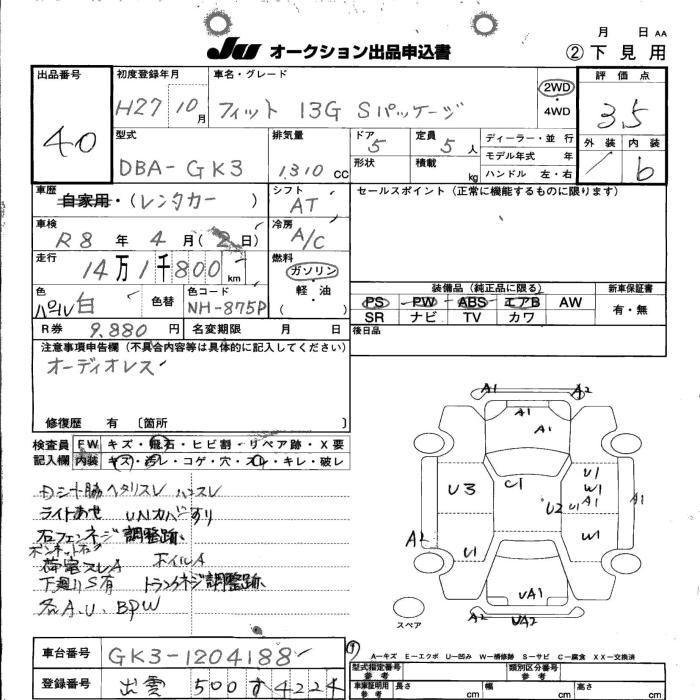 月 日 AA
JU オークション出品申込書 ②下見用
出品番号 初度登録年月 車名・グレード 評価点
40 H27 10月 フィット 13G Sパッケージ 2WD・4WD 3.5
型式 排気量 ドア 定員 ディーラー・並行 外装 内装
DBA-GK3 1,310 CC 5 5人 モデル年式 年 b
形状 積載 kg ハンドル 左・右
車歴 シフト セールスポイント（正常に機能するものに限ります）
自家用・（レンタカー） AT
車検 冷房
R8年4月(2日) A/C
走行 燃料
14万1千800km ガソリン・軽油
色 色替 色コード 装備品（純正品に限る） 新車保証書
パール白 NH-875P ( ) PS PW ABS エアB AW 有・無
SR ナビ TV カワ
R券 9,880円 名変期限 月 日 後日品
注意事項申告欄（不具合内容等は具体的に記入してください）
オーディオレス
修復歴 有〔箇所 〕
検査員 FW キズ・飛石・ヒビ割・リペア跡・X要
記入欄 内装 キズ・汚レ・コゲ・穴・スレ・キレ・破レ
A1 A2
A1
A1
U3 C1 U2 U1 A1
U1
W1
A1
A2 U1 W1 A1
UA1
A2 UA2
スペア
ハンスレ
ライトあせ
石フェンネジ調整跡
ボンネット石
荷室スレA ホイルA
下廻りS有 トランクネジ調整跡
名A.U.BPW
車台番号 GK3-1204188
登録番号 出雲 500 す 4224
A－キズ E－エクボ U－凹み W－補修跡 S－サビ C－腐食 XX－交換済
型式指定番号 参考 類別区分番号 参考
車庫証明用 参考 長さ cm 幅 cm 高さ cm